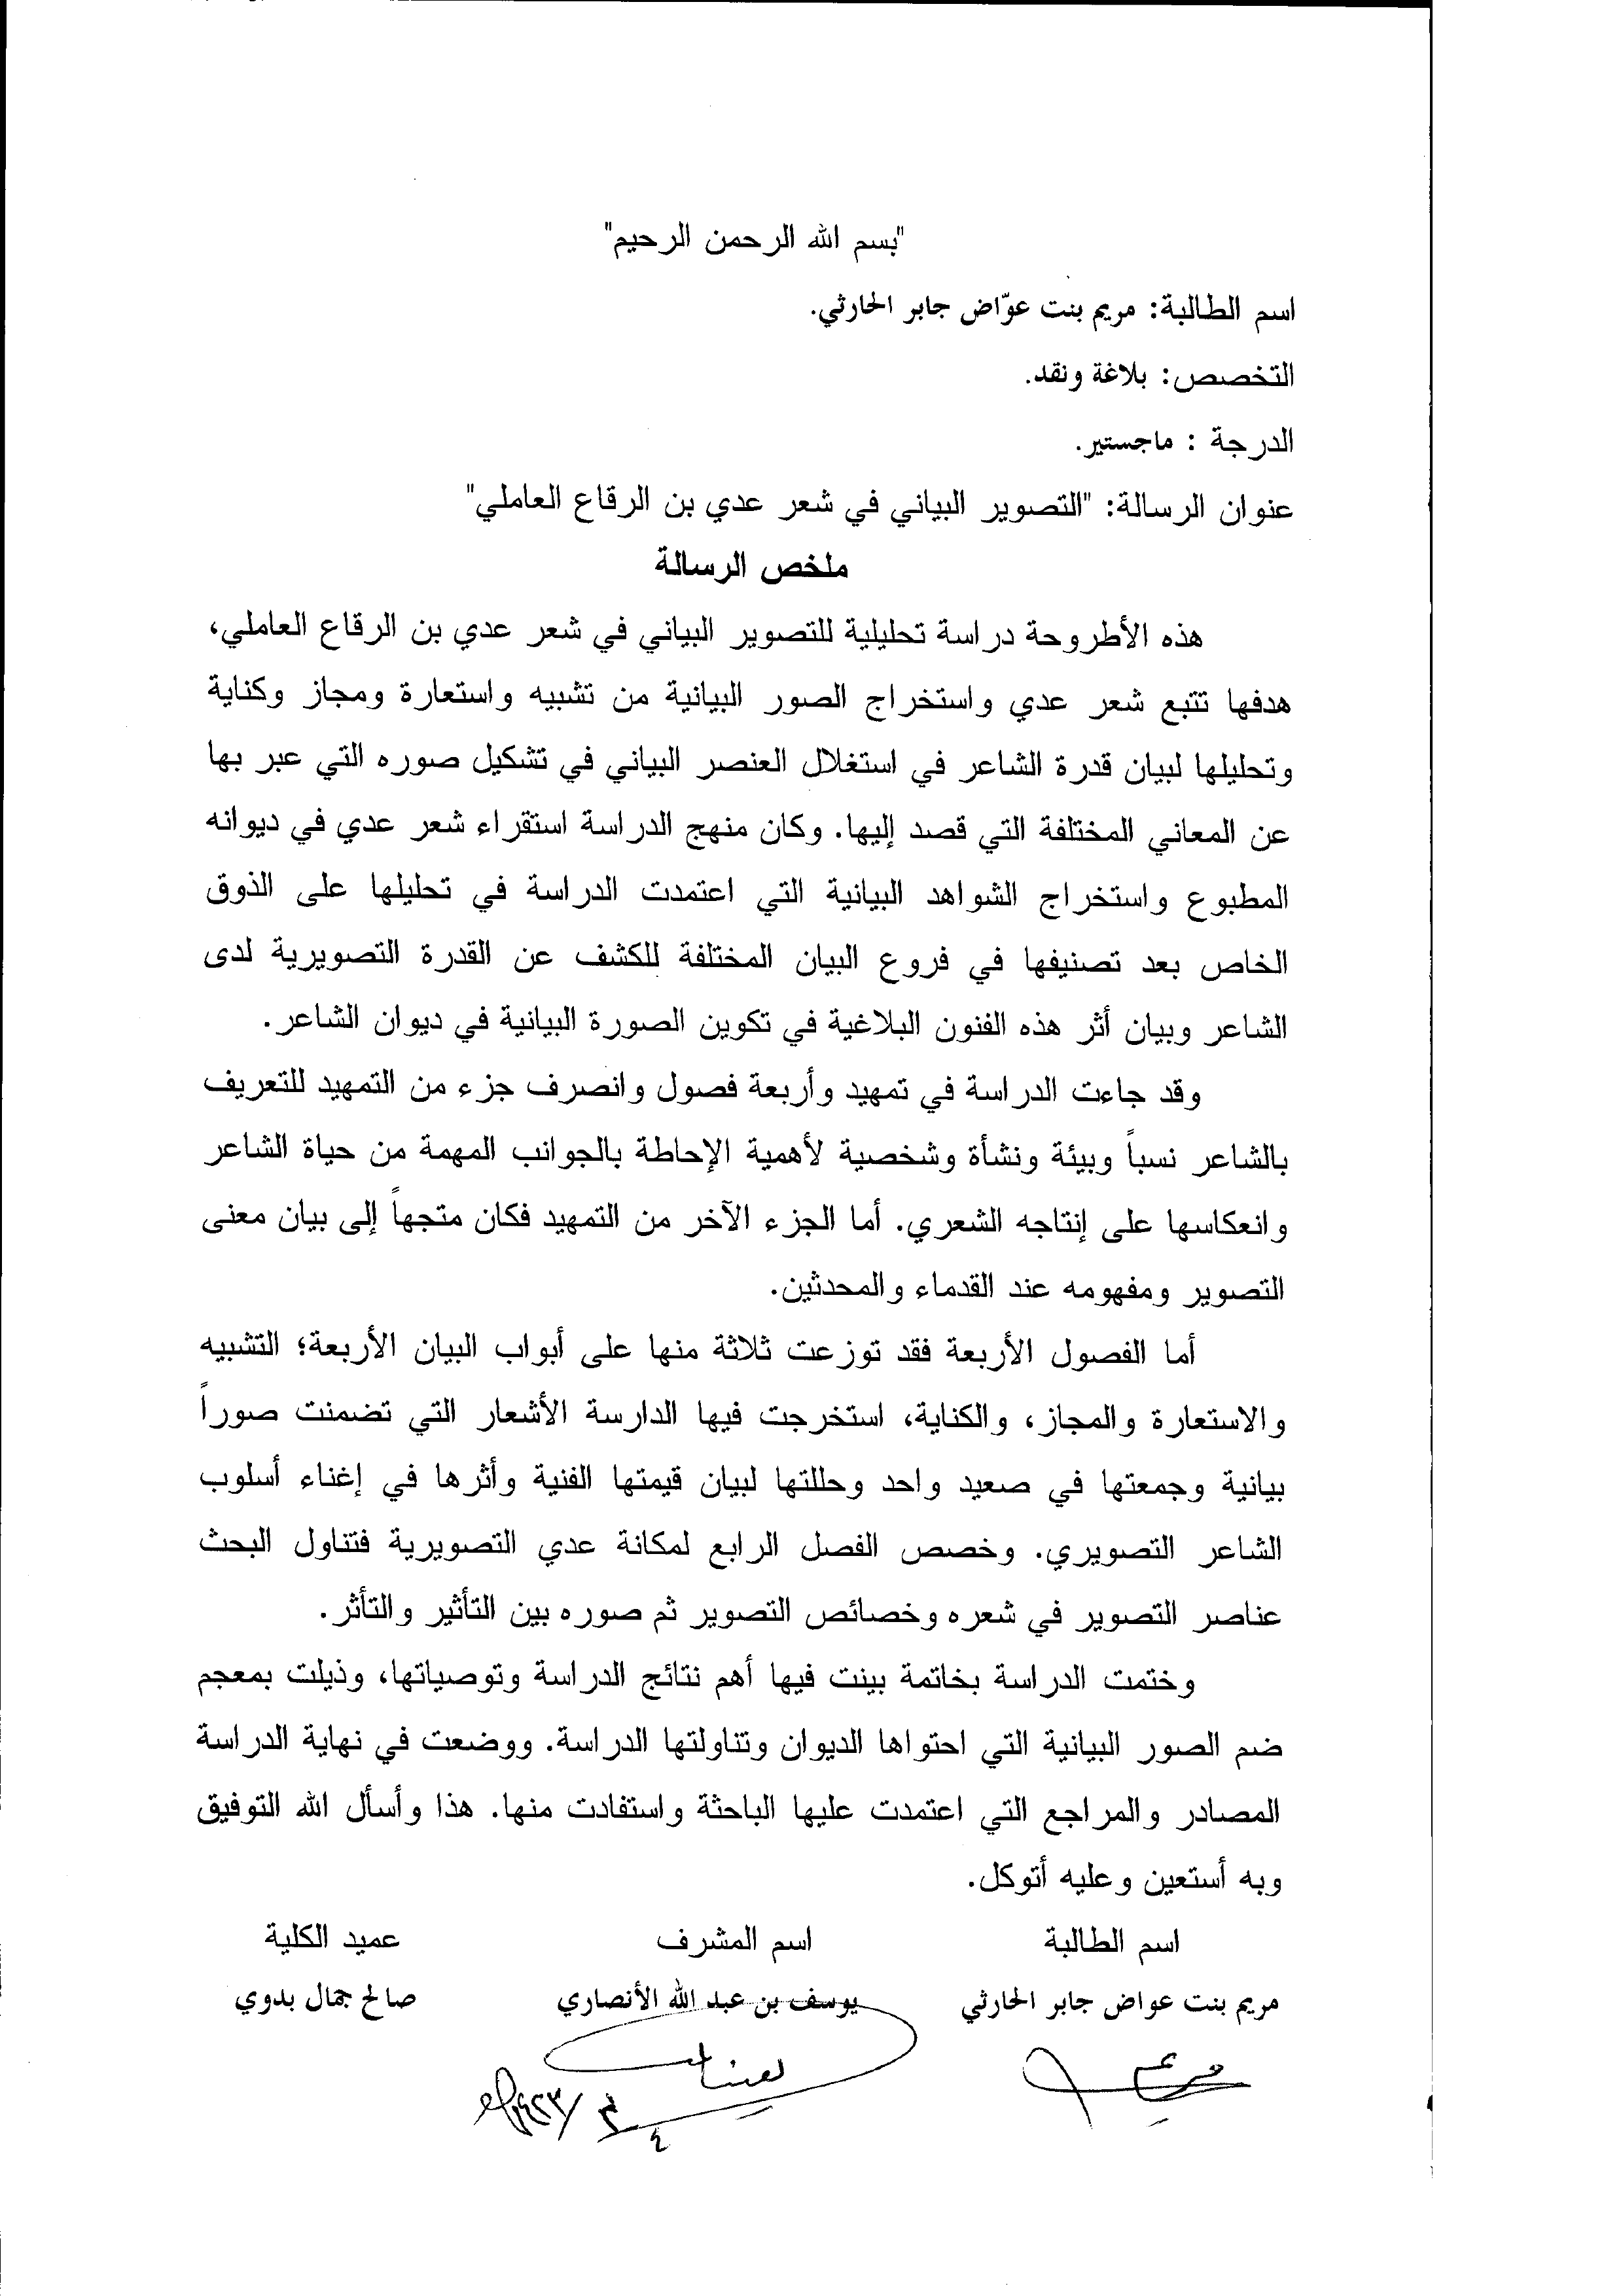 "بسم الله الرحمن الرحيم"
اسم الطالبة: مريم بنت عوّاض جابر الحارثي.
التخصص: بلاغة ونقد.
الدرجة : ماجستير.
عنوان الرسالة: "التصوير البياني في شعر عدي بن الرقاع العاملي"
ملخص الرسالة
هذه الأطروحة دراسة تحليلية للتصوير البياني في شعر عدي بن الرقاع العاملي،
هدفها تتبع شعر عدي واستخراج الصور البيانية من تشبيه واستعارة ومجاز وكناية
وتحليلها لبيان قدرة الشاعر في استغلال العنصر البياني في تشكيل صوره التي عبر بها
عن المعاني المختلفة التي قصد إليها. وكان منهج الدراسة استقراء شعر عدي في ديوانه
المطبوع واستخراج الشواهد البيانية التي اعتمدت الدراسة في تحليلها على الذوق
الخاص بعد تصنيفها في فروع البيان المختلفة للكشف عن القدرة التصويرية لدى
الشاعر وبيان أثر هذه الفنون البلاغية في تكوين الصورة البيانية في ديوان الشاعر.
وقد جاءت الدراسة في تمهيد وأربعة فصول وانصرف جزء من التمهيد للتعريف
بالشاعر نسباً وبيئة ونشأة وشخصية لأهمية الإحاطة بالجوانب المهمة من حياة الشاعر
وانعكاسها على إنتاجه الشعري. أما الجزء الآخر من التمهيد فكان متجهاً إلى بيان معنى
التصوير ومفهومه عند القدماء والمحدثين.
أما الفصول الأربعة فقد توزعت ثلاثة منها على أبواب البيان الأربعة؛ التشبيه
والاستعارة والمجاز، والكناية، استخرجت فيها الدارسة الأشعار التي تضمنت صوراً
بيانية وجمعتها في صعيد واحد وحللتها لبيان قيمتها الفنية وأثرها في إغناء أسلوب
الشاعر التصويري. وخصص الفصل الرابع لمكانة عدي التصويرية فتناول البحث
عناصر التصوير في شعره وخصائص التصوير ثم صوره بين التأثير والتأثر.
وختمت الدراسة بخاتمة بينت فيها أهم نتائج الدراسة وتوصياتها، وذيلت بمعجم
ضم الصور البيانية التي احتواها الديوان وتناولتها الدراسة. ووضعت في نهاية الدراسة
المصادر والمراجع التي اعتمدت عليها الباحثة واستفادت منها. هذا وأسأل الله التوفيق
وبه أستعين وعليه أتوكل.
اسم الطالبة اسم المشرف عميد الكلية
مريم بنت عواض جابر الحارثي يوسف بن عبد الله الأنصاري صالح جمال بدوي